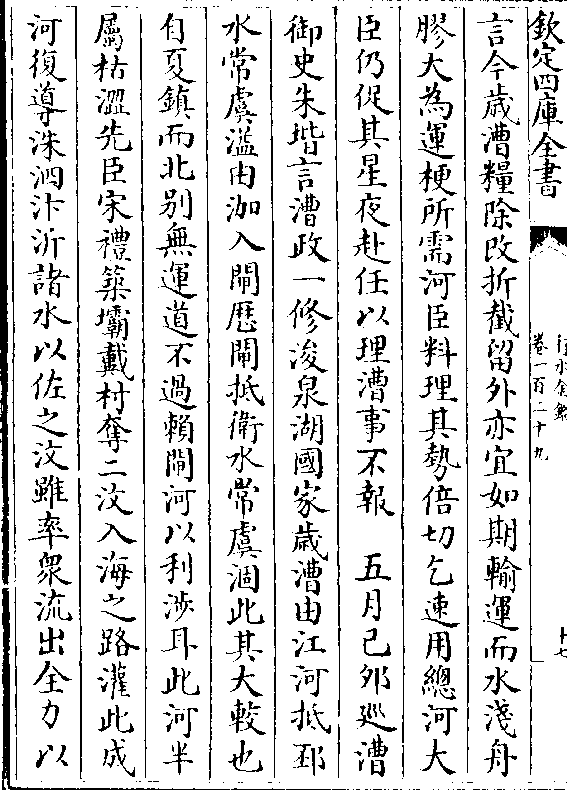 欽定四庫全書
行水金鑑
卷一百二十九
十七
言今歲漕糧除改折截留外亦宜如期輸運而水淺舟
膠大為運梗所需河臣料理其勢倍切乞速用總河大
臣仍促其星夜赴任以理漕事不報　五月己卯廵漕
御史朱堦言漕政一修浚泉湖國家歲漕由江河抵邳
水常虞溢由泇入閘歴閘抵衛水常虞涸此其大較也
自夏鎮而北别無運道不過賴閘河以利涉耳此河半
屬枯澀先臣宋禮築壩戴村奪二汶入海之路灌此成
河復導洙泗汴沂諸水以佐之汶雖率衆流出全力以